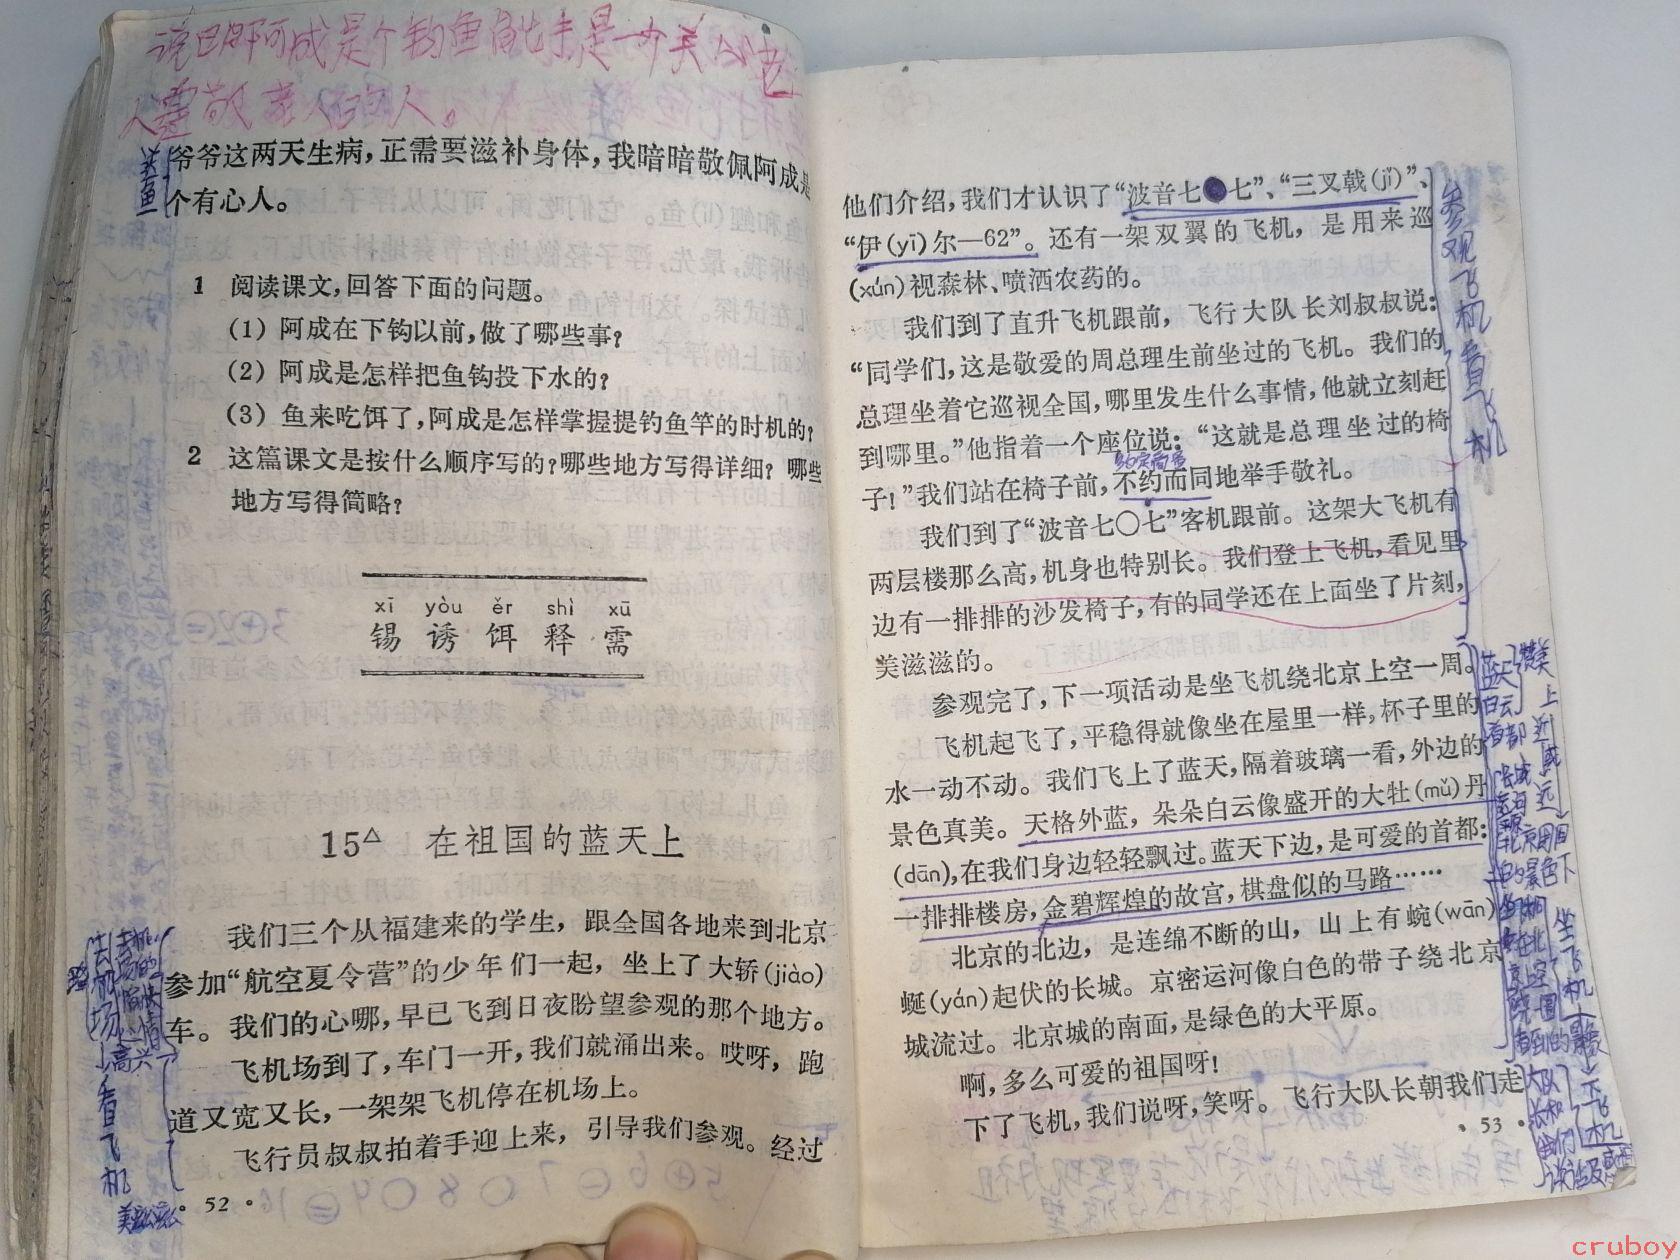 说明阿成是个钓鱼能手是一个关心老
人尊敬老人的人。
送鱼
爷爷这两天生病，正需要滋补身体，我暗暗敬佩阿成是
个有心人。
1 阅读课文，回答下面的问题。
（1）阿成在下钩以前，做了哪些事？
（2）阿成是怎样把鱼钩投下水的？
（3）鱼来吃饵了，阿成是怎样掌握提钓鱼竿的时机的？
2 这篇课文是按什么顺序写的？哪些地方写得详细？哪些
地方写得简略？
xī yòu ěr shì xū
锡 诱 饵 释 需
15△ 在祖国的蓝天上
我们三个从福建来的学生，跟全国各地来到北京
参加“航空夏令营”的少年们一起，坐上了大轿(jiào)
车。我们的心哪，早已飞到日夜盼望参观的那个地方。
飞机场到了，车门一开，我们就涌出来。哎呀，跑
道又宽又长，一架架飞机停在机场上。
飞行员叔叔拍着手迎上来，引导我们参观。经过
去机场
高兴
看飞机
美滋滋
·52·
他们介绍，我们才认识了“波音七〇七”、“三叉戟(jǐ)”、
“伊(yī)尔—62”。还有一架双翼的飞机，是用来巡
(xún)视森林、喷洒农药的。
我们到了直升飞机跟前，飞行大队长刘叔叔说：
“同学们，这是敬爱的周总理生前坐过的飞机。我们的
总理坐着它巡视全国，哪里发生什么事情，他就立刻赶
到哪里。”他指着一个座位说：“这就是总理坐过的椅
约定商量
子！”我们站在椅子前，不约而同地举手敬礼。
我们到了“波音七〇七”客机跟前。这架大飞机有
两层楼那么高，机身也特别长。我们登上飞机，看见里
边有一排排的沙发椅子，有的同学还在上面坐了片刻，
美滋滋的。
参观完了，下一项活动是坐飞机绕北京上空一周。
飞机起飞了，平稳得就像坐在屋里一样，杯子里的
水一动不动。我们飞上了蓝天，隔着玻璃一看，外边的
景色真美。天格外蓝，朵朵白云像盛开的大牡(mǔ)丹
(dān)，在我们身边轻轻飘过。蓝天下边，是可爱的首都：
一排排楼房，金碧辉煌的故宫，棋盘似的马路……
北京的北边，是连绵不断的山，山上有蜿(wān)
蜒(yán)起伏的长城。京密运河像白色的带子绕北京
城流过。北京城的南面，是绿色的大平原。
啊，多么可爱的祖国呀！
下了飞机，我们说呀，笑呀。飞行大队长朝我们走
·53·
参观飞机看飞机
蓝天
白云
首都
长城
运河
平原
赞美
上
近
或
远
坐飞机
下飞机
大队
长和
我们
谈话及
cruboy